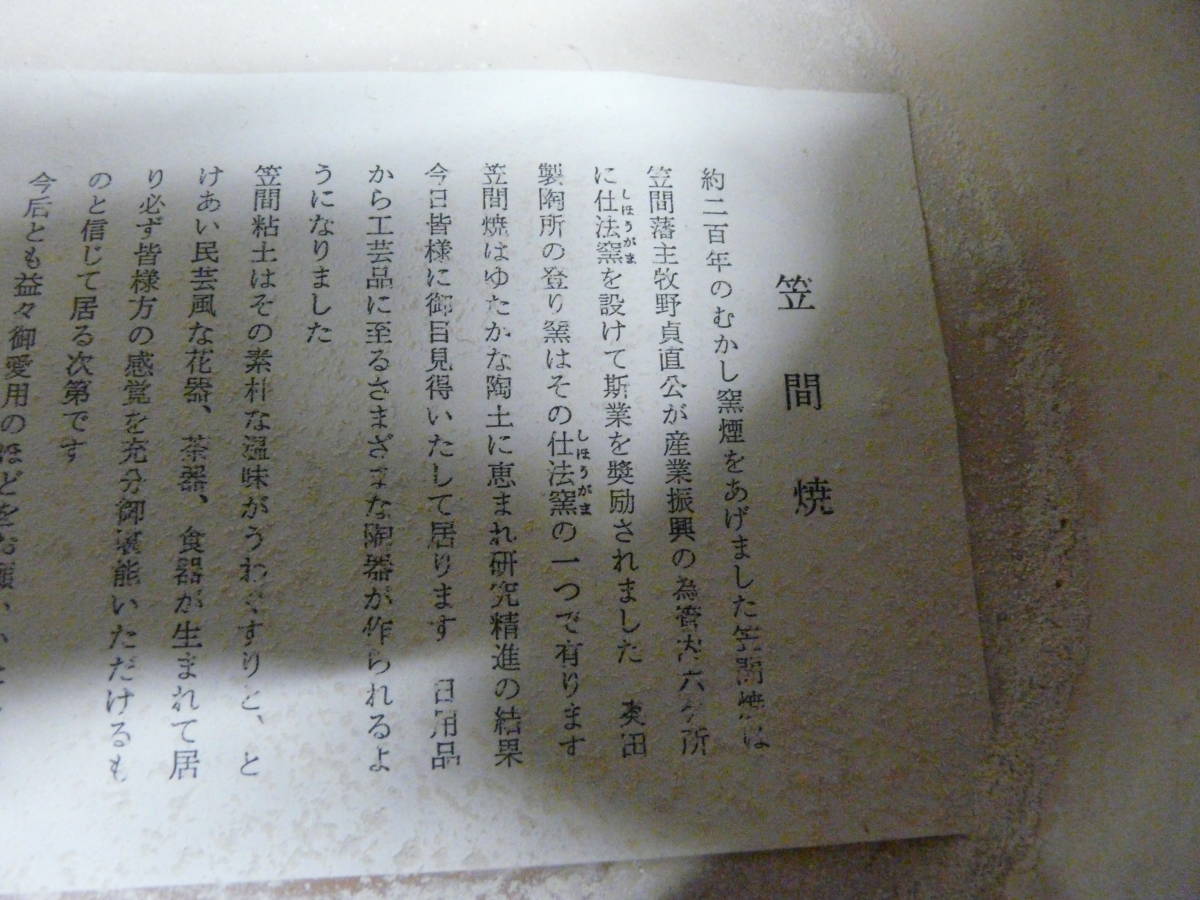 笠間焼
約二百年のむかし窯煙をあげました笠間焼は
笠間藩主牧野貞直公が産業振興の為管内六ケ所
に仕法窯しほうがまを設けて斯業を奬励されました 奥田
製陶所の登り窯はその仕法窯しほうがまの一つで有ります
笠間焼はゆたかな陶土に恵まれ研究精進の結果
今日皆様に御目見得いたして居ります 日用品
から工芸品に至るさまざまな陶器が作られるよ
うになりました
笠間粘土はその素朴な温味がうわぐすりと、と
けあい民芸風な花器、茶器、食器が生まれて居
り必ず皆様方の感覚を充分御堪能いただけるも
のと信じて居る次第です
今后とも益々御愛用のほどをお願い